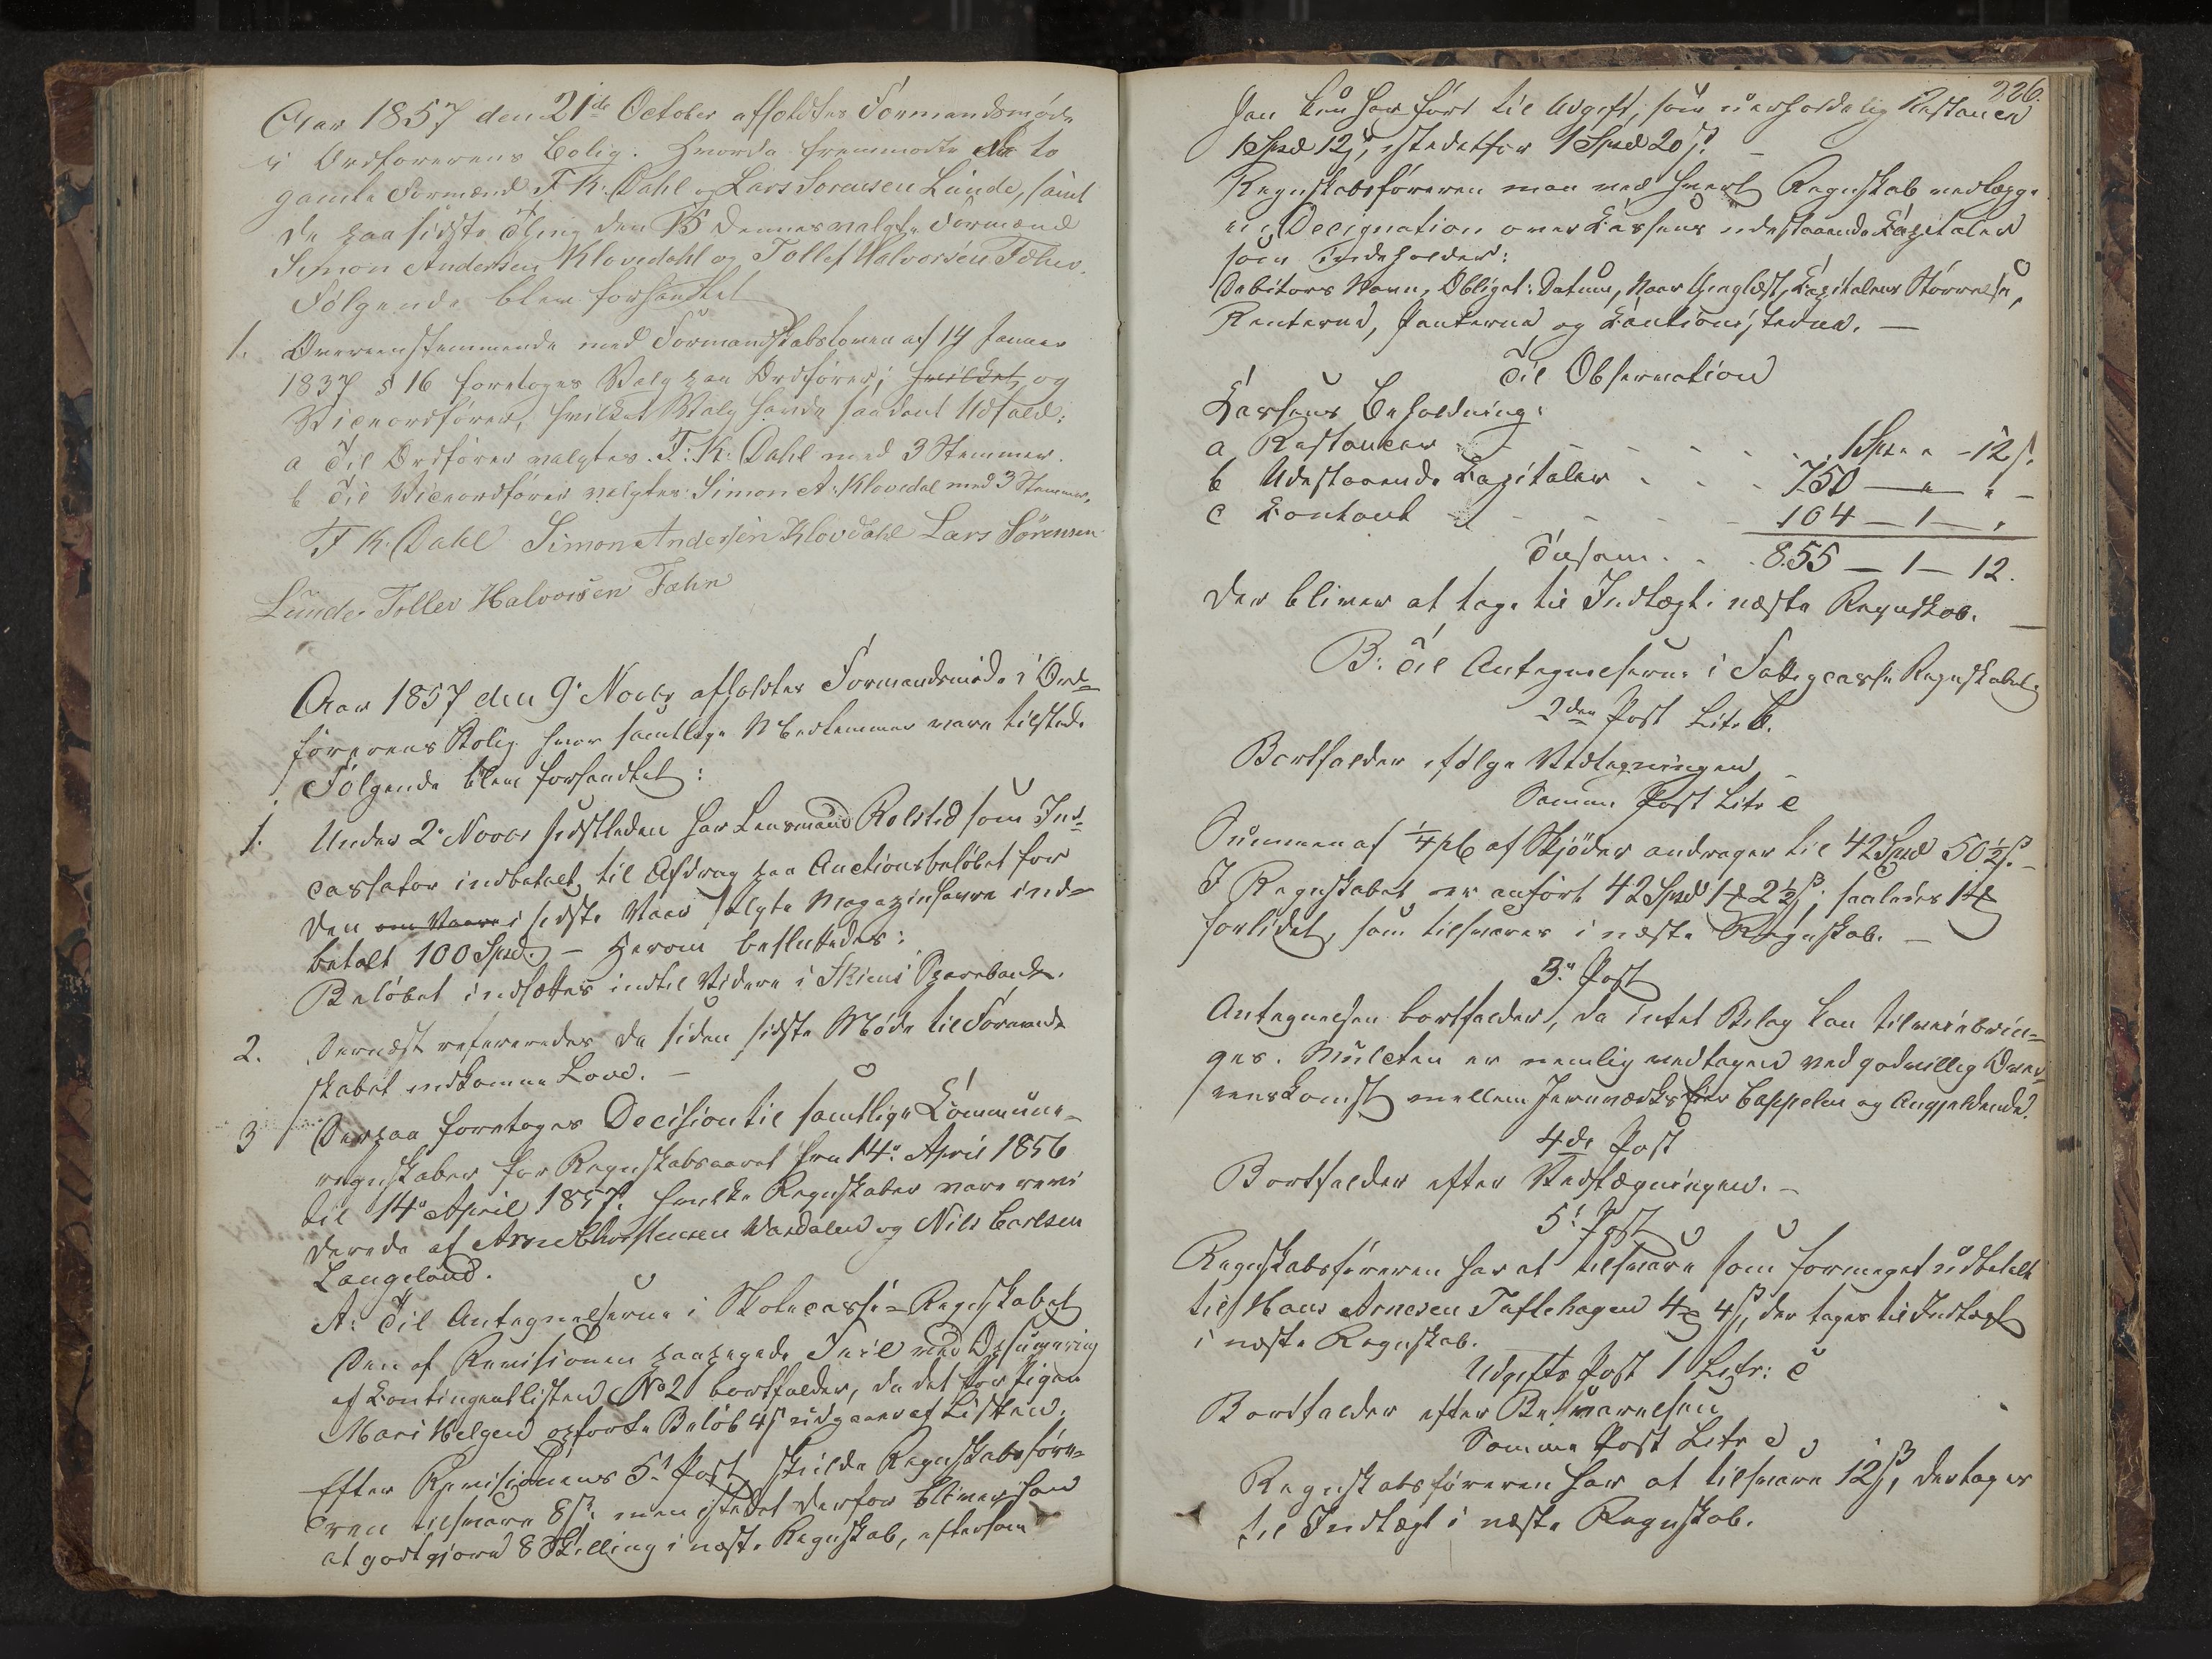 Aar 1857 den 21de October afholdtes Formandsmøde
i Ordførerens Bolig. Hvorda fremmødte de to
gamle Formænd F. K. Dahl og Lars Sørensen Lunde, samt
de paa sidste Thing den 15 dennes valgte Formænd
Simon Andersen Klovedahl og Tollef Halvorsen Fæhn.
Følgende blev forhandlet
1. Overeensstemmende med Formandskabsloven af 14 Januar
1837 § 16 foretoges Valg paa Ordfører; hvilket og
Viceordfører, hvilket Valg havde saadant Udfald:
a Til Ordfører valgtes F: K: Dahl med 3 Stemmer.
b Til Viceordfører valgtes Simon A: Klovedal med 3 Stemmer.
F K. Dahl Simon Andersen Klovdahl Lars Sørensen
Lunde. Tollev Halvorsen Fæhn
Aar 1857 den 9de Novbr afholdtes Formandsmøde i Ord-
førerens Bolig hvor samtlige Medlemmer vare tilstede
Følgende blev forhandlet:
1. Under 2de Novbr sidstleden har Lensmand Rolsted som In-
cassator indbetalt til Afdrag paa Auctionsbeløbet for
den om Vaaren i sidste Vaar solgte Magazinhavre ind-
betalt 100 Spd. – Herom besluttedes:
Beløbet indsættes indtil Videre i Skiens Sparebank.
2. Dernæst refereredes de siden sidste Møde til Formand-
skabet indkomne Love. –
3 Derpaa foretoges Decision til samtlige Commune-
regnskaber for Regnskabsaaret fra 14de April 1856
til 14de April 1857. hvilke Regnskaber vare revi
derede af Arne Christensen Vasdalen og Nils Carlsen
Langeland.
A: Til Antegnelserne i Skolecasse-Regnskabet
Den af Revisionen paapegede Feil ved Opsumering
af Contingentlisten No 2 bortfalder, da det for Pigen
Mari Helgen opførte Beløb 4 s udgaaer af Listen.
Efter Revisionens 5te Post skulde Regnskabsføre-
ren tilsvare 8 s. men istedet derfor bliver han
at godtgjøre 8 Skilling i næste Regnskab, eftersom
226.
han kun har ført til Udgift, som uerholdelig Restancer
1 Spd 12 s, istedetfor 1 Spd 20 s. –
Regnskabsføreren maa ved hvert Regnskab vedlægge
en Designation over Kassens udestaaende Capitaler
som indeholder:
Debitors Navn, Obligat: Datum, Naar thinglæst, Capitalens Størrelse,
Renterne, Panterne og Cautionisterne. –
Til Observation
Kassens Beholdning:
a Restancer - - - - 1 Spd " - 12 s.
b Udestaaende Capitaler - - - 750 — " " –
c Contant - - - - 104 – 1 – "
Tilsam. - - 855 – 1 – 12.
der bliver at tage til Indtægt i næste Regnskab. –
B: Til Antegnelserne i Fattigcasse Regnskabet.
2den Post Litr b.
Bortfalder ifølge Vedtegningen –
Samme Post Litr c
Summen af 1/4 pC af Skjøder andrager til 42 Spd 50 1/2 s. –
I Regnskabet er anført 42 Spd 1 ort 2 1/2 s; saaledes 1 ort
forlidet, som tilsvares i næste Regnskab. –
3die Post
Antegnelsen bortfalder, da intet Bilag kan tilveiebrin-
ges. Mulcten er nemlig vedtagen ved godvillig Over-
eenskomst mellem Jernværkseier Cappelen og Angjeldende.
4de Post
Bortfalder efter Vedtægningen. –
5te Post
Regnskabsføreren har at tilsvare som formeget udbetalt
til Hans Arnesen Taftehagen 4 ort 4 s, der tages til Indtægt
i næste Regnskab.
Udgifts Post 1 Litr: c
Bortfalder efter Besvarelsen
Samme Post Litr d
Regnskabsføreren har at tilsvare 12 s, der tages
til Indtægt i næste Regnskab.